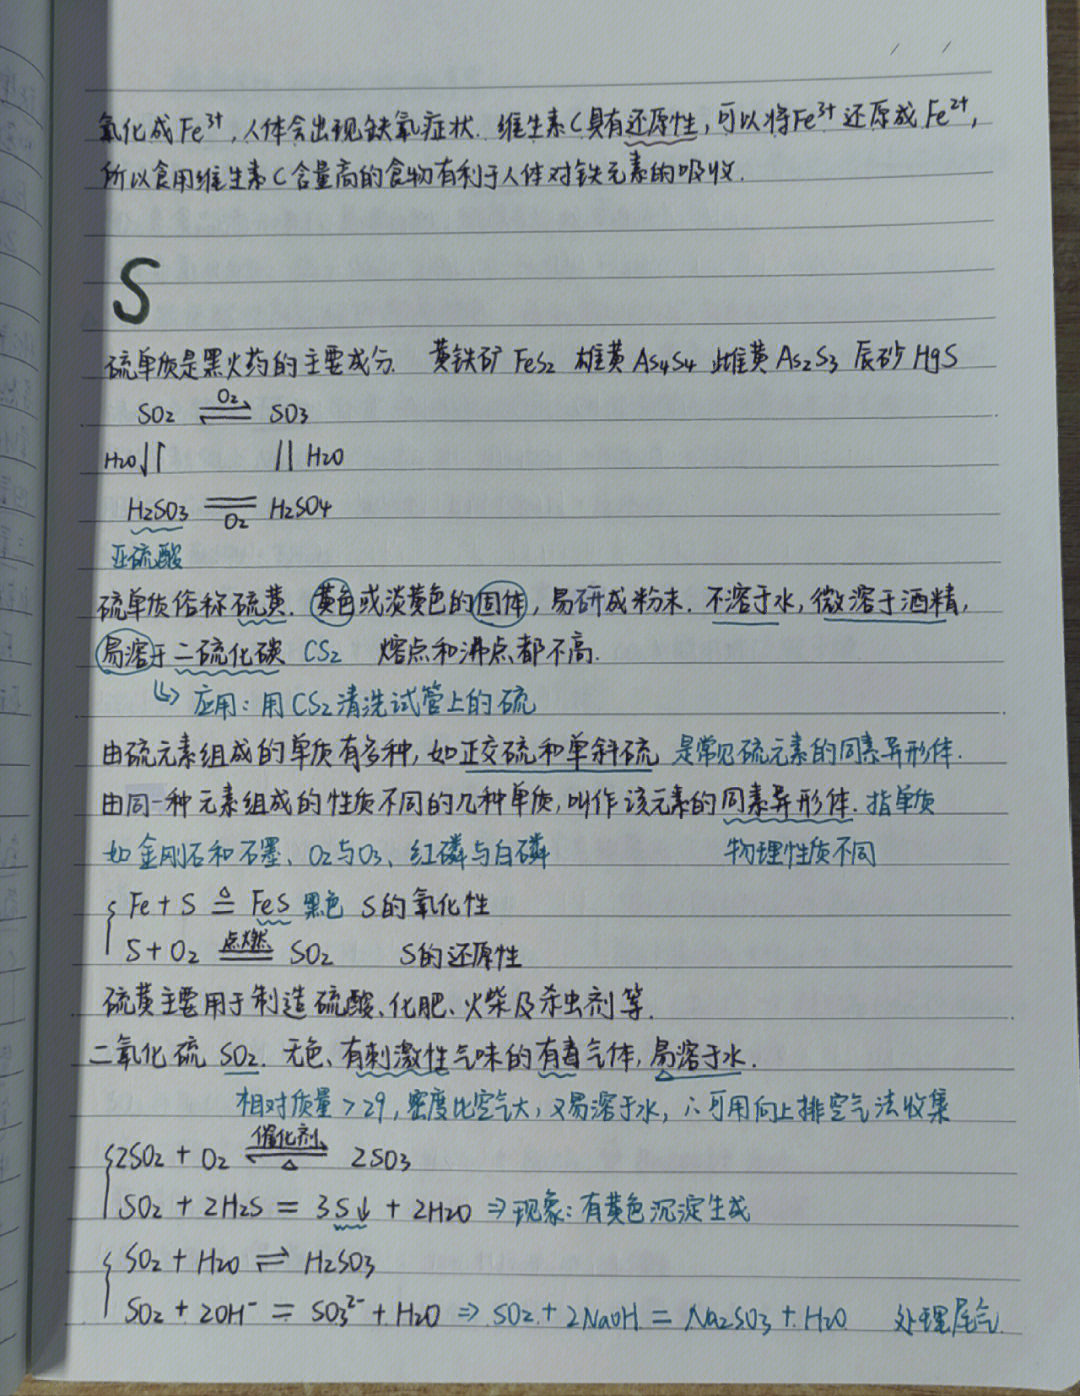 氧化成Fe³⁺,人体会出现缺氧症状.维生素C具有还原性,可以将Fe³⁺还原成Fe²⁺,
所以食用维生素C含量高的食物有利于人体对铁元素的吸收.
S
硫单质是黑火药的主要成分. 黄铁矿 FeS₂ 雄黄 As₄S₄ 雌黄 As₂S₃ 辰砂 HgS
SO₂ ⇌ O₂ SO₃
H₂O ↓↑ || H₂O
H₂SO₃ = O₂ H₂SO₄
亚硫酸
硫单质俗称硫黄. 黄色或淡黄色的固体,易研成粉末.不溶于水,微溶于酒精,
易溶于二硫化碳 CS₂ 熔点和沸点都不高.
↳ 应用:用CS₂清洗试管上的硫
由硫元素组成的单质有多种,如正交硫和单斜硫,是常见硫元素的同素异形体.
由同一种元素组成的性质不同的几种单质,叫作该元素的同素异形体.指单质
如金刚石和石墨、O₂与O₃、红磷与白磷 物理性质不同
Fe + S ≜ FeS 黑色 S的氧化性
S + O₂ 点燃= SO₂ S的还原性
硫黄主要用于制造硫酸、化肥、火柴及杀虫剂等.
二氧化硫 SO₂. 无色、有刺激性气味的有毒气体,易溶于水.
相对质量>29,密度比空气大,又易溶于水,∴可用向上排空气法收集
2SO₂ + O₂ 催化剂⇌△ 2SO₃
SO₂ + 2H₂S = 3S↓ + 2H₂O ⇒现象:有黄色沉淀生成
SO₂ + H₂O ⇌ H₂SO₃
SO₂ + 2OH⁻ = SO₃²⁻ + H₂O ⇒ SO₂ + 2NaOH = Na₂SO₃ + H₂O 处理尾气.